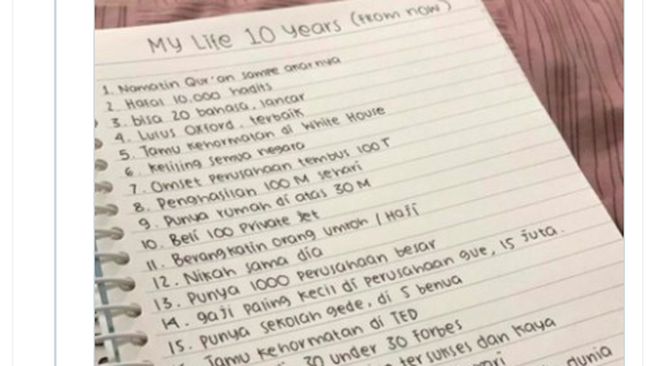 My Life 10 years (from now)
1. Namatin Qur'an sampe akarnya
2. Hafal 10.000 hadits
3. bisa 20 bahasa, lancar
4. Lulus Oxford, terbaik
5. Tamu kehormatan di White House
6. Keliling semua negara
7. Omset perusahaan tembus 100 T
8. Penghasilan 100 M sehari
9. Punya rumah di atas 30 M
10. Beli 100 Private Jet
11. Berangkatin orang umroh / Haji
12. Nikah sama dia
13. Punya 1000 perusahaan besar
14. gaji paling kecil di perusahaan gue, 15 juta.
15. Punya sekolah gede, di 5 benua
Tamu kehormatan di TED
30 under 30 Forbes
ter sukses dan kaya
dunia